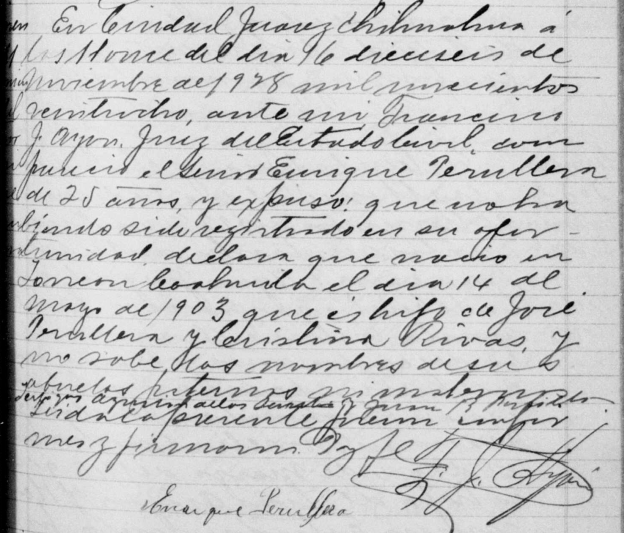 En Ciudad Juarez Chihuahua á
las 11 once del dia 16 dieciseis de
Noviembre de 1928 mil novecientos
veintiocho, ante mi Francisco
J. Ayon. Juez del Estado Civil, com
parecio el señor Enrique Perullera
de 25 años, y expuso: que no ha
biendo sido registrado en su opor-
tunidad, declara que nacio en
Torreon Coahuila el dia 14 de
mayo de 1903 que es hijo de José
Perullera y Cristina Rivas, y
no sabe los nombres de sus
abuelos paternos ni maternos
testigos Juan
Leida la presente fueron confor
mes y firmaron. Doy fe
F. J. Ayon
Enrique Perullera